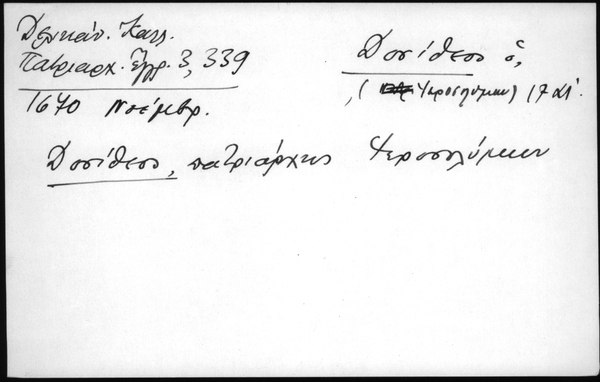 Δελικάν. Κατλ.
Πατριαρχ. Ἔγγρ. 3, 339
1670 Νοέμβρ.
Δοσίθεος ὁ,
, ( Ἱεροσολύμων) 17 αἰ.
Δοσίθεος, πατριάρχης Ἱεροσολύμων